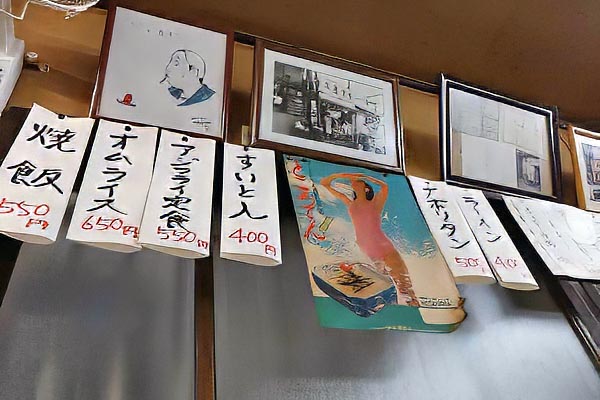 焼飯
550円
・オムライス
650円
・アジフライ定食
550円
すいとん
400円
ナポリタン
500
ラーメン
400